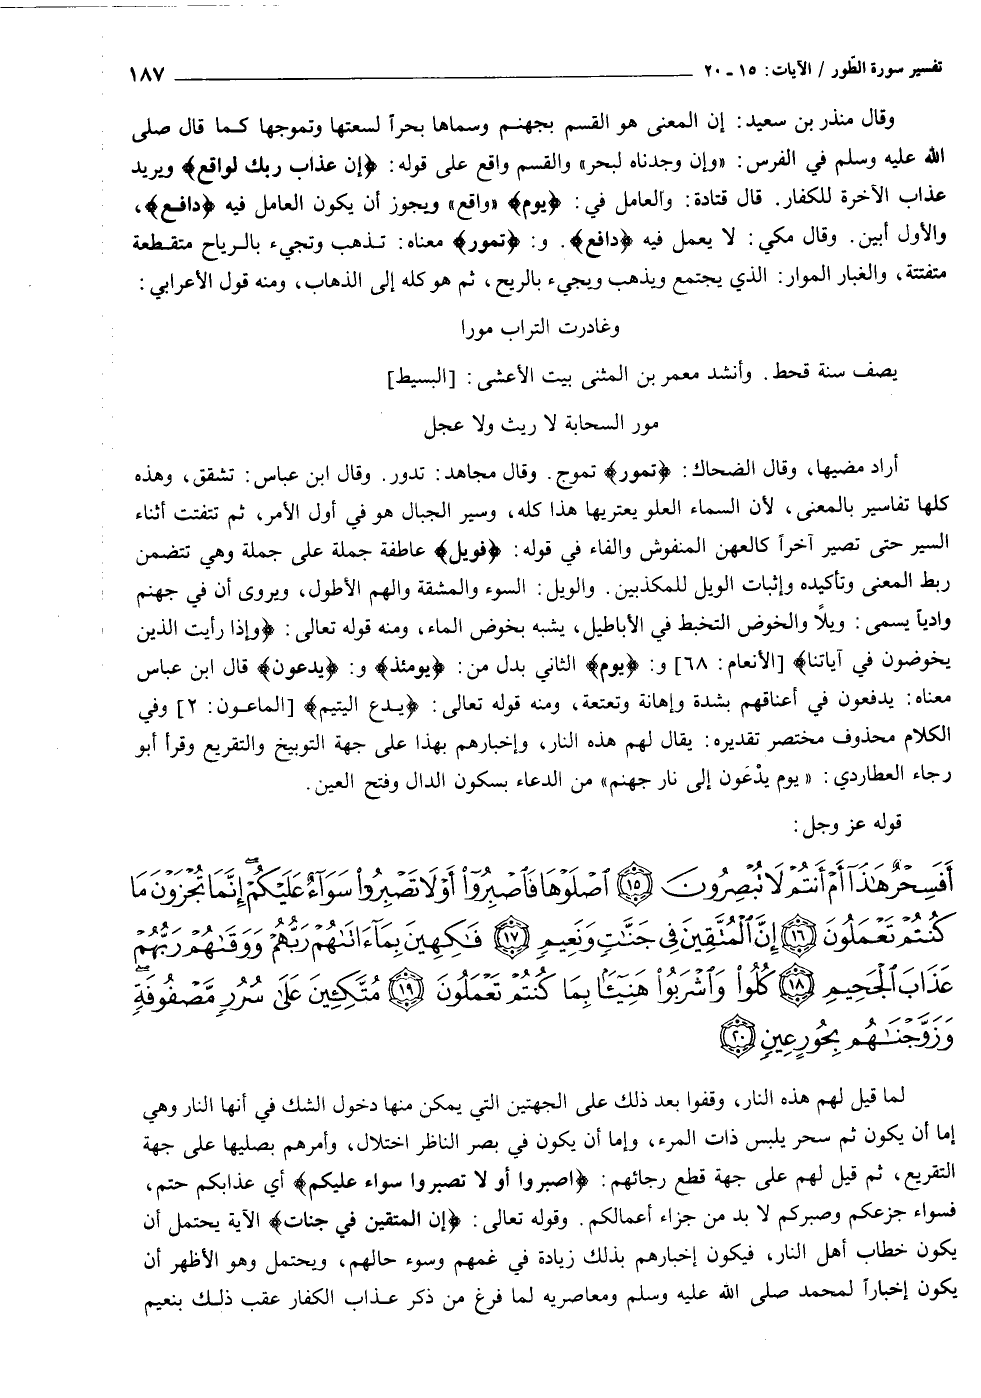 تفسير سورة الطّور / الآيات: ١٥ ـ ٢٠ ١٨٧
وقال منذر بن سعيد: إن المعنى هو القسم بجهنم وسماها بحراً لسعتها وتموجها كما قال صلى
الله عليه وسلم في الفرس: «وإن وجدناه لبحر» والقسم واقع على قوله: ﴿إن عذاب ربك لواقع﴾ ويريد
عذاب الآخرة للكفار. قال قتادة: والعامل في: ﴿يوم﴾ «واقع» ويجوز أن يكون العامل فيه ﴿دافع﴾،
والأول أبين. وقال مكي: لا يعمل فيه ﴿دافع﴾. و: ﴿تمور﴾ معناه: تذهب وتجيء بالرياح متقطعة
متفتتة، والغبار الموار: الذي يجتمع ويذهب ويجيء بالريح، ثم هو كله إلى الذهاب، ومنه قول الأعرابي:
وغادرت التراب مورا
يصف سنة قحط. وأنشد معمر بن المثنى بيت الأعشى: [البسيط]
مور السحابة لا ريث ولا عجل
أراد مضيها، وقال الضحاك: ﴿تمور﴾ تموج. وقال مجاهد: تدور. وقال ابن عباس: تشقق، وهذه
كلها تفاسير بالمعنى، لأن السماء العلو يعتريها هذا كله، وسير الجبال هو في أول الأمر، ثم تتفتت أثناء
السير حتى تصير آخراً كالعهن المنفوش والفاء في قوله: ﴿فويل﴾ عاطفة جملة على جملة وهي تتضمن
ربط المعنى وتأكيده وإثبات الويل للمكذبين. والويل: السوء والمشقة والهم الأطول، ويروى أن في جهنم
وادياً يسمى: ويلاً والخوض التخبط في الأباطيل، يشبه بخوض الماء، ومنه قوله تعالى: ﴿وإذا رأيت الذين
يخوضون في آياتنا﴾ [الأنعام: ٦٨] و: ﴿يوم﴾ الثاني بدل من: ﴿يومئذ﴾ و: ﴿يدعون﴾ قال ابن عباس
معناه: يدفعون في أعناقهم بشدة وإهانة وتعتعة، ومنه قوله تعالى: ﴿يدع اليتيم﴾ [الماعون: ٢] وفي
الكلام محذوف مختصر تقديره: يقال لهم هذه النار، وإخبارهم بهذا على جهة التوبيخ والتقريع وقرأ أبو
رجاء العطاردي: «يوم يدْعَون إلى نار جهنم» من الدعاء بسكون الدال وفتح العين.
قوله عز وجل:
أَفَسِحْرٌ هَٰذَآ أَمْ أَنتُمْ لَا تُبْصِرُونَ ١٥ ٱصْلَوْهَا فَٱصْبِرُوٓا۟ أَوْ لَا تَصْبِرُوا۟ سَوَآءٌ عَلَيْكُمْ ۖ إِنَّمَا تُجْزَوْنَ مَا
كُنتُمْ تَعْمَلُونَ ١٦ إِنَّ ٱلْمُتَّقِينَ فِى جَنَّٰتٍ وَنَعِيمٍ ١٧ فَٰكِهِينَ بِمَآ ءَاتَىٰهُمْ رَبُّهُمْ وَوَقَىٰهُمْ رَبُّهُمْ
عَذَابَ ٱلْجَحِيمِ ١٨ كُلُوا۟ وَٱشْرَبُوا۟ هَنِيٓـًٔۢا بِمَا كُنتُمْ تَعْمَلُونَ ١٩ مُتَّكِـِٔينَ عَلَىٰ سُرُرٍ مَّصْفُوفَةٍ ۖ
وَزَوَّجْنَٰهُم بِحُورٍ عِينٍ ٢٠
لما قيل لهم هذه النار، وقفوا بعد ذلك على الجهتين التي يمكن منها دخول الشك في أنها النار وهي
إما أن يكون ثم سحر يلبس ذات المرء، وإما أن يكون في بصر الناظر اختلال، وأمرهم بصليها على جهة
التقريع، ثم قيل لهم على جهة قطع رجائهم: ﴿اصبروا أو لا تصبروا سواء عليكم﴾ أي عذابكم حتم،
فسواء جزعكم وصبركم لا بد من جزاء أعمالكم. وقوله تعالى: ﴿إن المتقين في جنات﴾ الآية يحتمل أن
يكون خطاب أهل النار، فيكون إخبارهم بذلك زيادة في غمهم وسوء حالهم، ويحتمل وهو الأظهر أن
يكون إخباراً لمحمد صلى الله عليه وسلم ومعاصريه لما فرغ من ذكر عذاب الكفار عقب ذلك بنعيم